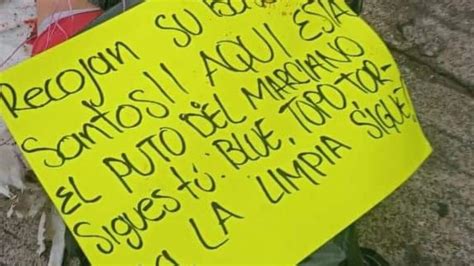 RECOJAN SU
SANTOS!! AQUI ESTA
EL PUTO DEL MARCIANO
SIGUES TÚ: BLUE, TOPO TOR-
LA LIMPIA SIGUE